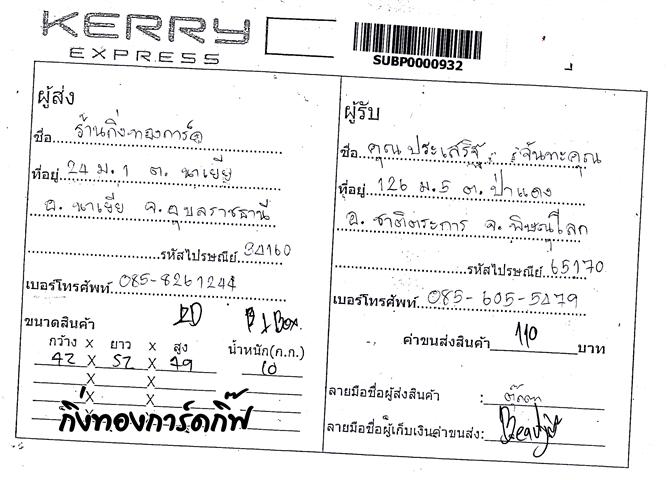 KERRY
EXPRESS
SUBP0000932
ผู้ส่ง
ชื่อ ร้านกิ่งทองการ์ด
ที่อยู่ 24 ม.1 ต. นาเยีย
อ. นาเยีย จ.อุบลราชธานี
รหัสไปรษณีย์ 34160
เบอร์โทรศัพท์ 085-8261244
ขนาดสินค้า
กว้าง x ยาว x สูง น้ำหนัก(ก.ก.)
42 x 52 x 49 10
X X
X X
X X
กิ่งทองการ์ดกิ๊ฟ
ผู้รับ
ชื่อ คุณ ประเสริฐ จันทะคุณ
ที่อยู่ 126 ม.5 ต. ป่าแดง
อ. ชาติตระการ จ. พิษณุโลก
รหัสไปรษณีย์ 65170
เบอร์โทรศัพท์ 085-605-5479
ค่าขนส่งสินค้า 110 บาท
ลายมือชื่อผู้ส่งสินค้า :
ลายมือชื่อผู้เก็บเงินค่าขนส่ง: